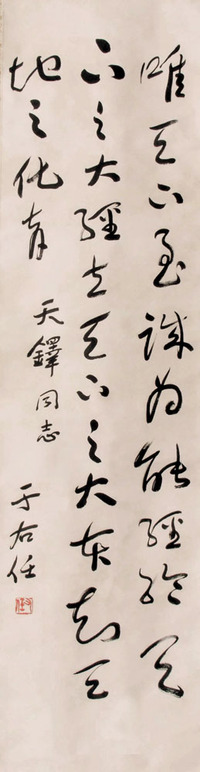 唯天下至誠為能經綸天
下之大經立天下之大本知天
地之化育
天鐸同志
于右任